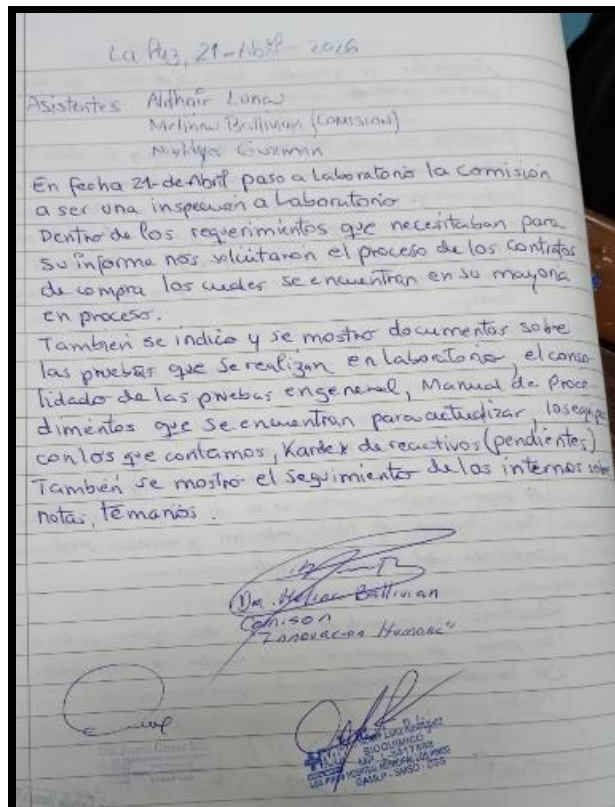 La Paz, 21-Abril-2026
Asistentes Aldhair Luna
Melina Ballivian (COMISION)
Guzman
En fecha 21-de Abril paso a laboratorio la comisión
a ser una inspección a Laboratorio
Dentro de los requerimientos que necesitaban para
su informe nos solicitaron el proceso de los contratos
de compra los cuales se encuentran en su mayoria
en proceso.
También se indico y se mostro documentos sobre
las pruebas que se realizan en laboratorio, el conso-
lidado de las pruebas en general, Manual de Proce-
dimientos que se encuentran para actualizar, los equipos
con los que contamos, Kardex de reactivos (pendientes)
También se mostro el seguimiento de los internos sobre
notas, temarios.
Dra. Melina Ballivian
Comison
"Innovacion Humana"
Luna Rodriguez
BIOQUIMICO
HOSPITAL MUNICIPAL LOS PINOS
GAMLP - SMSD - DSS